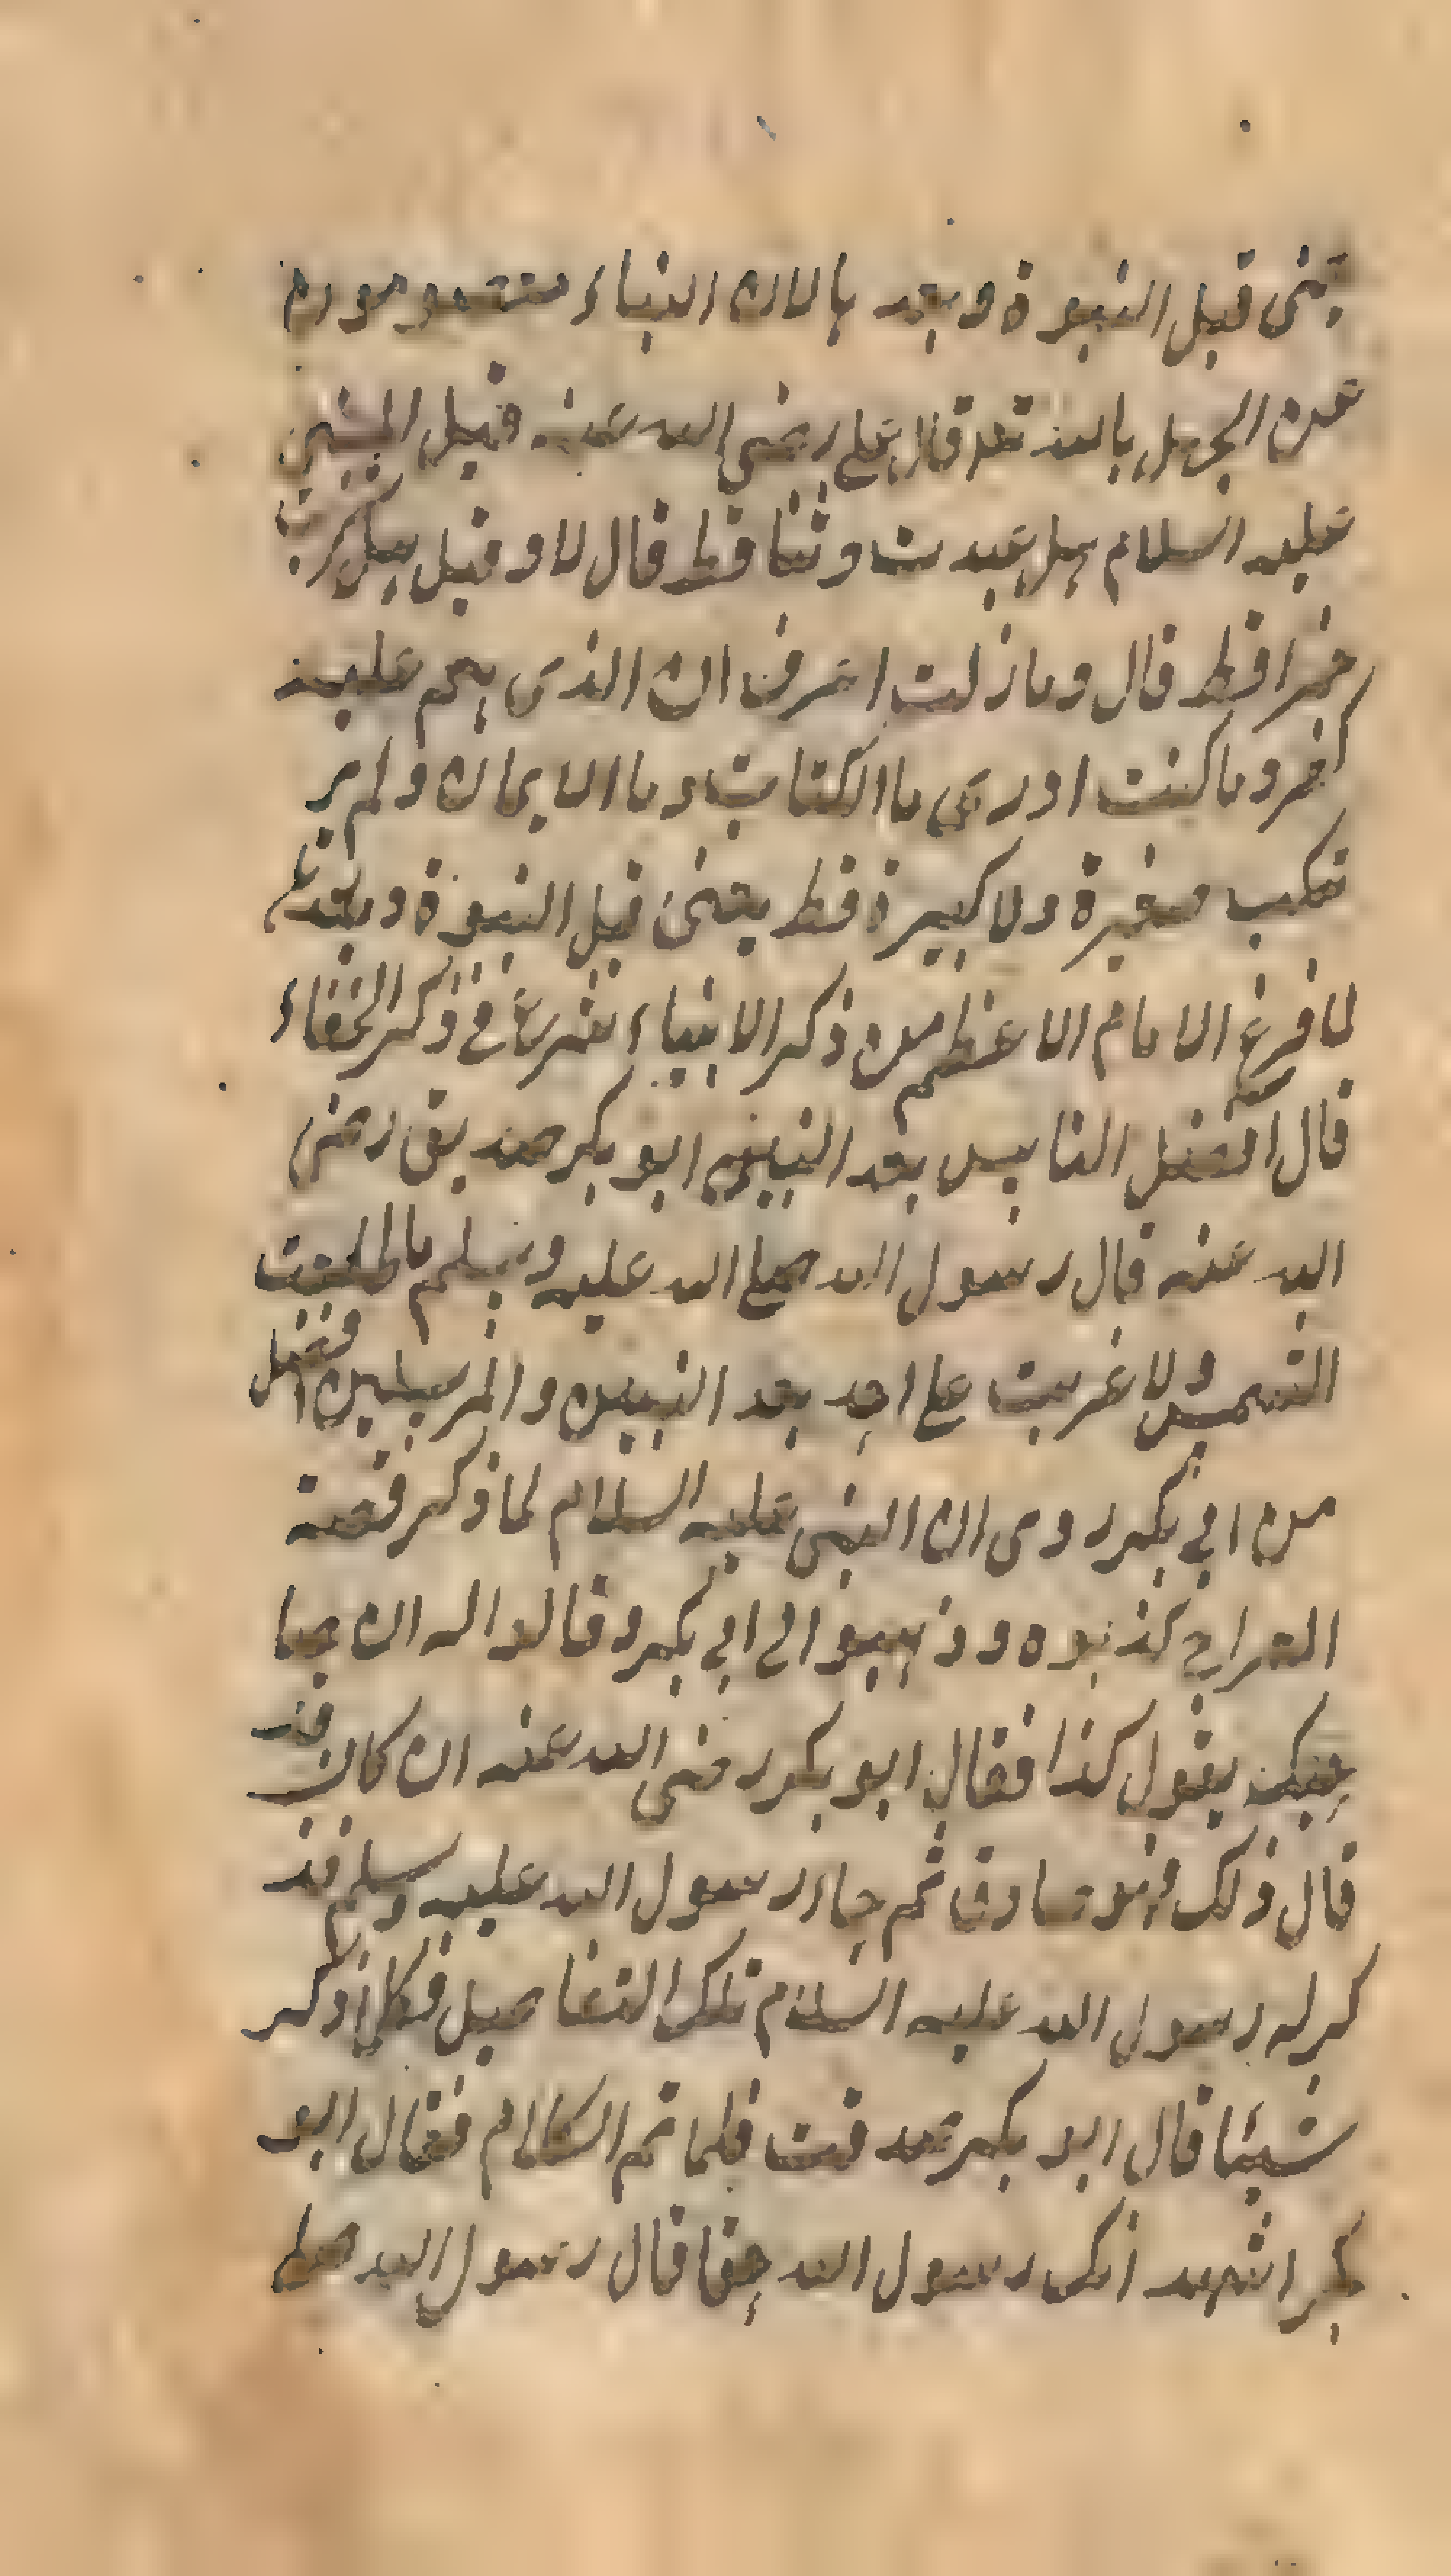 يعنى قبل النبوة وبعدها لان الانبياء معصومون
عن الجهل بالله تعا قال على رضي الله عنه قيل للنبى
عليه السلام هل عبدت وثنا قط قال لا وقيل هل شربت
خمرا قط قال وما زلت اعرف ان الذى هم عليه
كفر وما كنت ادرى ما الكتاب وما الايمان ولم ير
تكب صغيرة ولا كبيرة قط يعنى قبل النبوة وبعدها
لما فرغ الامام الاعظم من ذكر الانبياء شرع فى ذكر الخلفاء
قال افضل الناس بعد النبيين ابو بكر صديق رضى
الله عنه قال رسول الله صلى الله عليه وسلم ما طلعت
الشمس ولا غربت على احد بعد النبيين والمرسلين افضل
من ابى بكر روى ان النبى عليه السلام لما ذكر قصة
المعراج كذبوه وذهبوا الى ابى بكر وقالوا له ان صا
حبك يقول كذا فقال ابو بكر رضى الله عنه ان كان قد
قال ذلك فهو صادق ثم جاء رسول الله عليه وسلم فذ
كر له رسول الله عليه السلام تلك التفاصيل فكلما ذكر
شيئا قال ابو بكر صدقت فلما تم الكلام فقال ابو
بكر اشهد انك رسول الله حقا قال رسول الله صلى